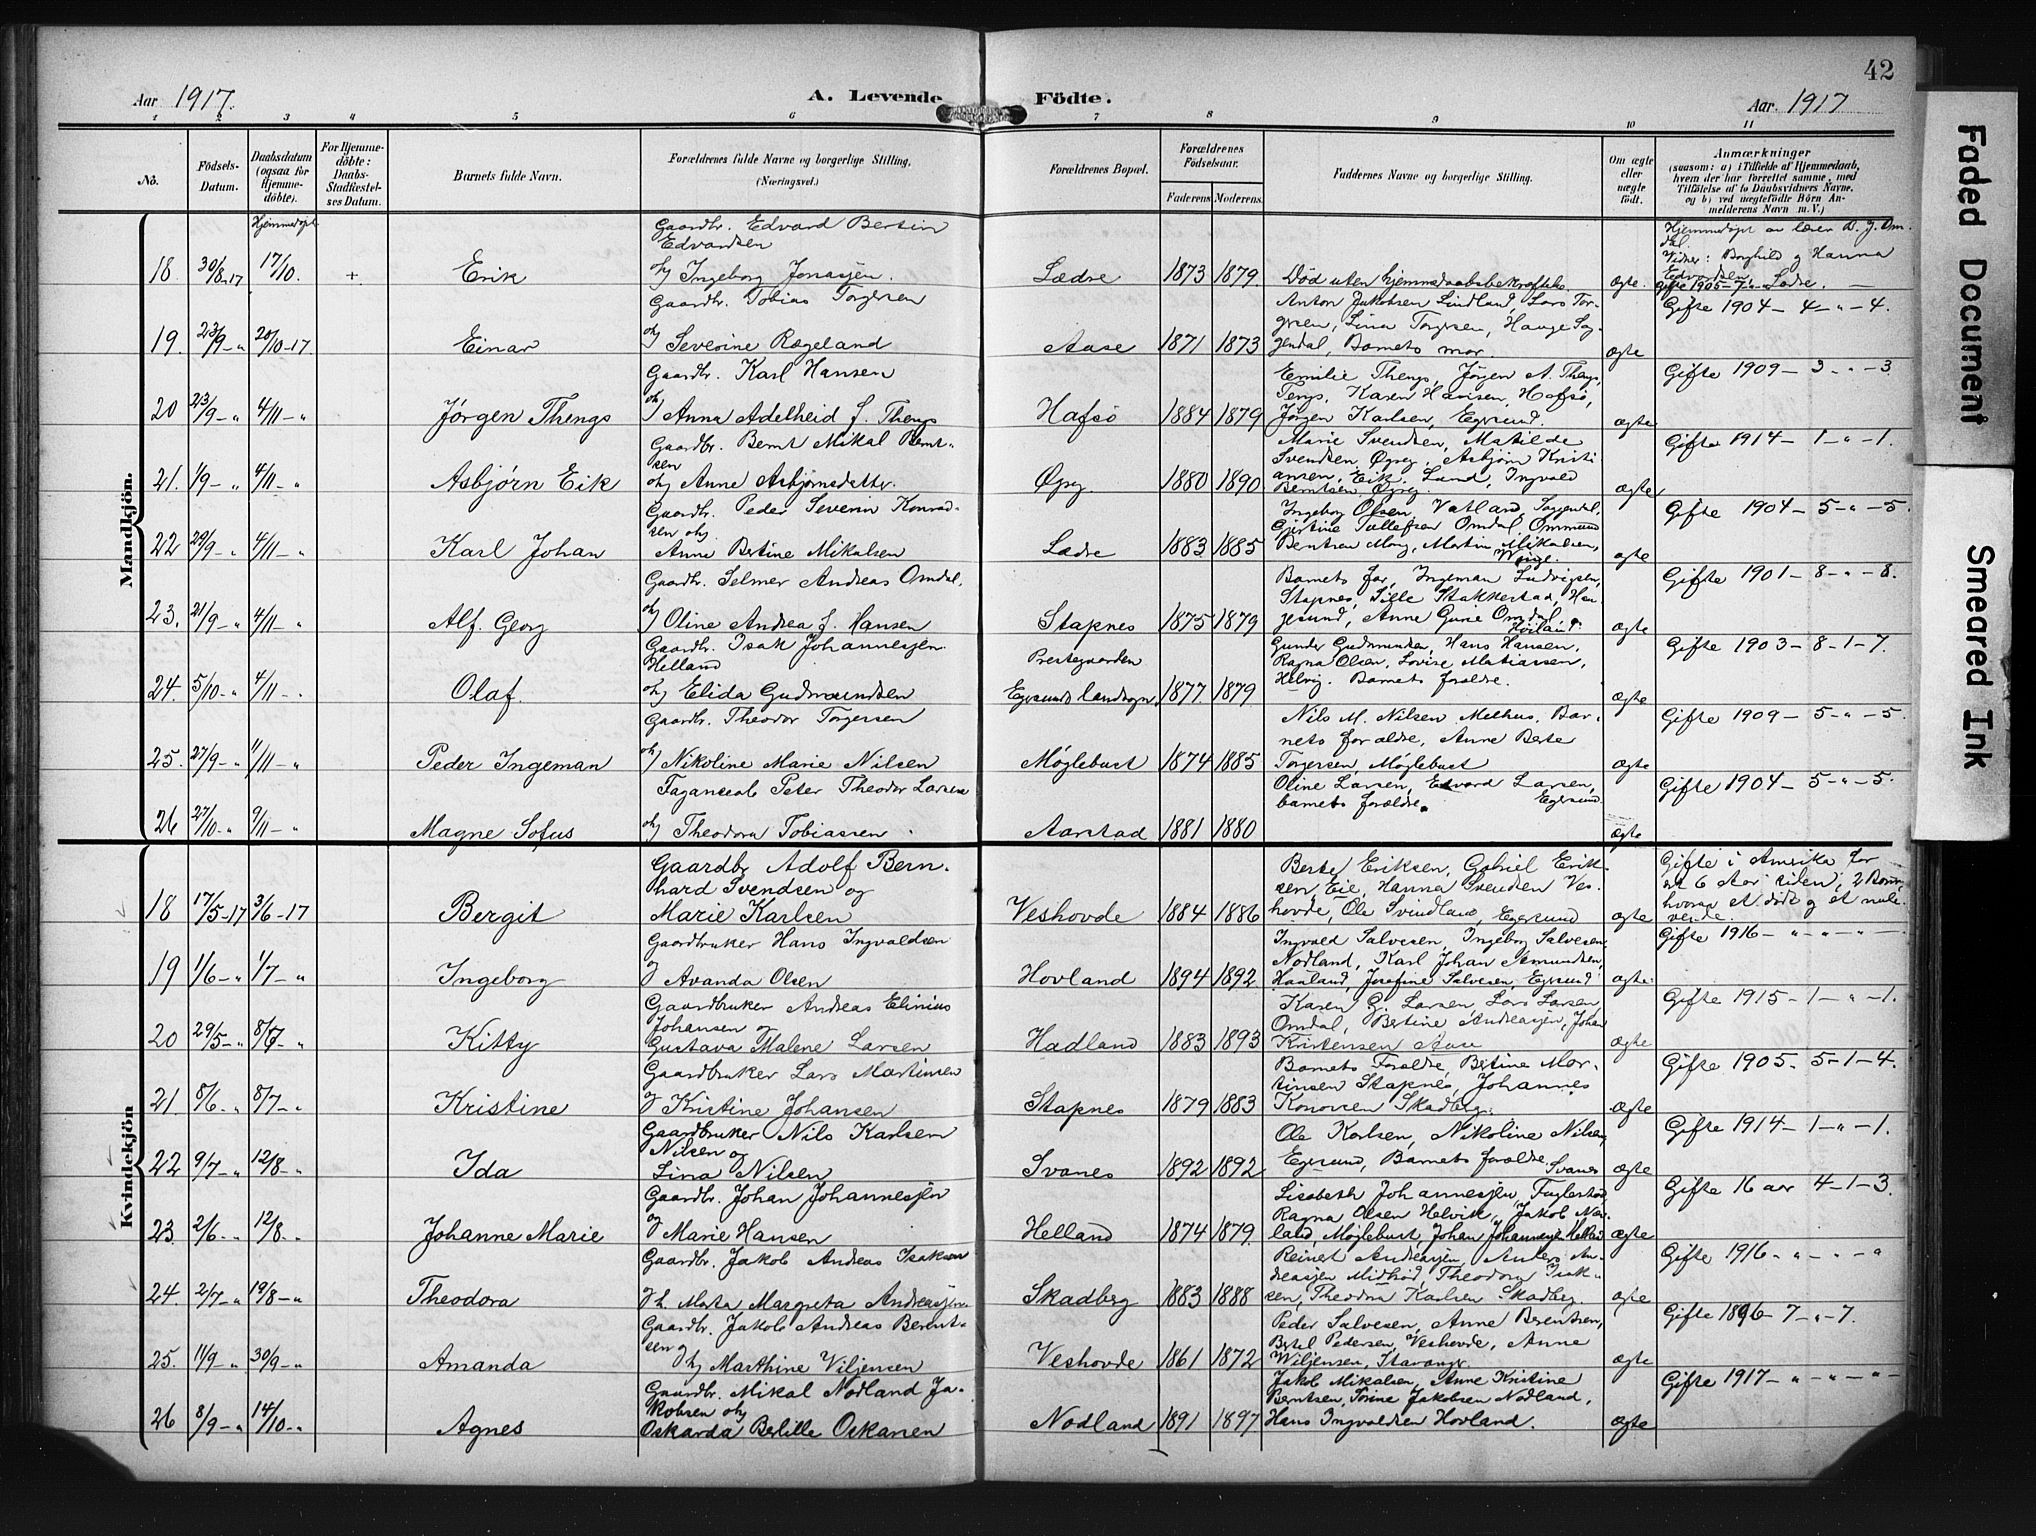 42
Aar 1917. A. Levende Födte. Aar. 1917
1 2 3 4 5 6 7 8 9 10 11
No. Födsels-Datum. Daabsdatum (ogsaa for Hjemmedöbte). For Hjemmedöbte: Daabs-Stadfæstelses Datum. Barnets fulde Navn. Forældrenes fulde Navne og borgerlige Stilling. (Næringsvei.) Forældrenes Bopæl. Forældrenes Födselsaar. Faderens Moderens. Faddernes Navne og borgerlige Stilling. Om ægte eller uægte födt. Anmærkninger (saasom: a) i Tilfælde af Hjemmedaab, hvem der har forrettet samme, med Tilföielse af to Daabsvidners Navne, og b) ved uægtefödte Börn Anmelderens Navn m. V.)
Mandkjön.
Hjemmedøpt Gaardbr. Edvard Bertin Hjemmedøpt av lærer
Edvardsen Vidner: Borghild og Hanna
18. 30/8-17 17/10. + Erik og Ingeborg Jonassen. Lædre 1873 1879 Død uten hjemmedaabsbekræftelse. ægte. Edvardsen Lædre.
Gifte 1905-7
Gaardbr. Tobias Torgersen Anton Jakobsen Lindland, Lars Tor- Gifte 1904- 4- " -4.
gersen, Lina Torgersen, Hauge Sog-
19. 23/9-" 20/10-17. Einar og Severine Rægeland Aase 1871 1873 gendal, Barnets mor. ægte
Gaardbr. Karl Hansen Emilie Thengs, Jørgen A. Thengs, Gifte 1909- 3- " -3
Tengs, Karen Hansen, Hafsø,
20 23/9-" 4/11-" Jørgen Thengs og Anna Adelheid f. Thengs Hafsø 1884 1879 Jørgen Karlsen, Egersund. ægte
Gaardbr. Bernt Mikal Bernt- Marie Svendsen, Matilde Gifte 1914- 1- " -1.
sen Svendsen Øgrey, Asbjørn Kristi-
21. 1/9-" 4/11-" Asbjørn Eik og Anne Asbjørnsdatter. Øgrey 1880 1890 ansen, Eik, Lund, Ingvald ægte
Berntsen Øgrey.
Gaardbr. Peder Severin Konrad- Ingeborg Olsen, Vatland, Soggendal, Gifte 1904- 5- " -5.
sen og Gjertine Tollefsen Omdal, Ommund
22 29/9-" 4/11-" Karl Johan Anne Bertine Mikalsen Lædre 1883 1885 Bentsen Mong, Martin Mikalsen, ægte
Gaardbr. Selmer Andreas Omdal, Barnets far, Ingeman Ludvigsen, Gifte 1901- 8- " -8.
Stapnes, Sille Stakkestad, Hau-
23. 21/9-" 4/11-" Alf. Georg og Oline Andrea f. Hansen Stapnes 1875 1879 gesund, Anne Gurie Omdal ægte
Gaardbr. Isak Johannessen Gunder Gudmunsen, Hans Hansen, Gifte 1903- 8-1-7.
Helland Prestegaarden Ragna Olsen, Lovise Matiassen,
24. 5/10-" 4/11-" Olaf. og Elida Gudmundsen Egersunds landsogn 1877. 1879 Helvig. Barnets foræ̈ldre. ægte
Gaardbr. Theodor Torgersen Nils M. Nilsen Melhus, Bar- Gifte 1909- 5- " -5.
nets forældre, Anne Berte
25. 27/9-" 11/11-" Peder Ingeman og Nikoline Marie Nilsen Møglebust 1874 1885 Torgersen Møglebust ægte
Peter Theodor Larsen Oline Larsen, Edvard Larsen, Gifte 1904- 5- " -5.
barnets forældre. Egersund
26 27/10-" 9/11-" Magne Sofus og Theodora Tobiassen Aarstad 1881 1880 ægte
Kvindekjön
Gaardbr Adolf Bern- Berte Eriksen, Gabriel Erik- Gifte i Amerika for
hard Svendsen og sen, Eie, Hanna Svendsen Ves- 6 aar siden, 2 Barn,
18 17/5-17 3/6-17 Bergit Marie Karlsen Veshovde 1884 1886 hovde, Ole Svindland, Egersund ægte hvorav et dødt og et nule-
vende.
Gaardbruker Hans Ingvaldsen Ingvald Salvesen, Ingeborg Salvesen Gifte 1916- " - " - " -
Nodland, Karl Johan
19 1/6-" 1/7-" Ingeborg og Avanda Olsen Hovland 1894 1892 Haaland, Josefine Salvesen, Egersund ægte.
Gaardbruker Andreas Elinius Karen G. Larsen, Lars Larsen, Gifte 1915-1- " -1.
Johansen og Omdal, Bertine Andreassen, Johan
20 29/5-" 8/7-" Kitty Gustava Malene Larsen Hadland 1883 1893 Kristensen Aase ægte
Gaardbruker Lars Martinsen Barnets Forældre, Bertine Mar- Gifte 1905- 5-1-4.
tinsen Stapnes, Johannes
21. 8/6-" 8/7-" Kristine og Kristine Johansen Stapnes 1879 1883 Konorsen Skadberg. ægte
Gaardbruker Nils Karlsen Ole Karlsen, Nikoline Nilsen, Gifte 1914-1- " -1.
Nilsen og
22 9/7-" 12/8-" Ida Lina Nilsen Svanes 1892 1892 Egersund, Barnets forældre Svanes ægte
Gaardbr. Johan Johannessen Lisabeth Johannessen, Fuglestad, Gifte 16 aar 4-1-3.
Ragna Olsen Helvik, Jakob
23. 2/6-" 12/8-" Johanne Marie og Marie Hansen Helland 1874 1879. land, Møglebust, Johan Johannessen Helland ægte
Gaardbr. Jakob Andreas Isaksen Reinert Andreassen, Anders An- Gifte 1916- " - " - "
dreassen Midbrød, Theodora Isak-
24. 2/7-" 19/8-" Theodora og h. Marta Margreta Andreassen. Skadberg 1883 1888 sen, Theodora Karlsen Skadberg. ægte
Gaardbr. Jakob Andreas Berent- Peder Salvesen, Anne Berentsen, Gifte 1896- 7- " -7.
sen Bertel Pedersen, Veshovde, Anne
25. 11/9-" 30/9-" Amanda og Marthine Viljensen Veshovde 1861 1872 Wiljensen, Stavanger. ægte
Gaardbr. Mikal Nodland Ja- Jakob Mikalsen, Anne Kristine Gifte 1917- " - " - " -
kobsen og Berntsen, Torine Jakobsen Nodland,
26 8/9-" 14/10-" Agnes Oskarda Berlille Oskarsen Nodland 1891 1897 Hans Ingvaldsen Hovland. ægte
Faded Document
Smeared Ink